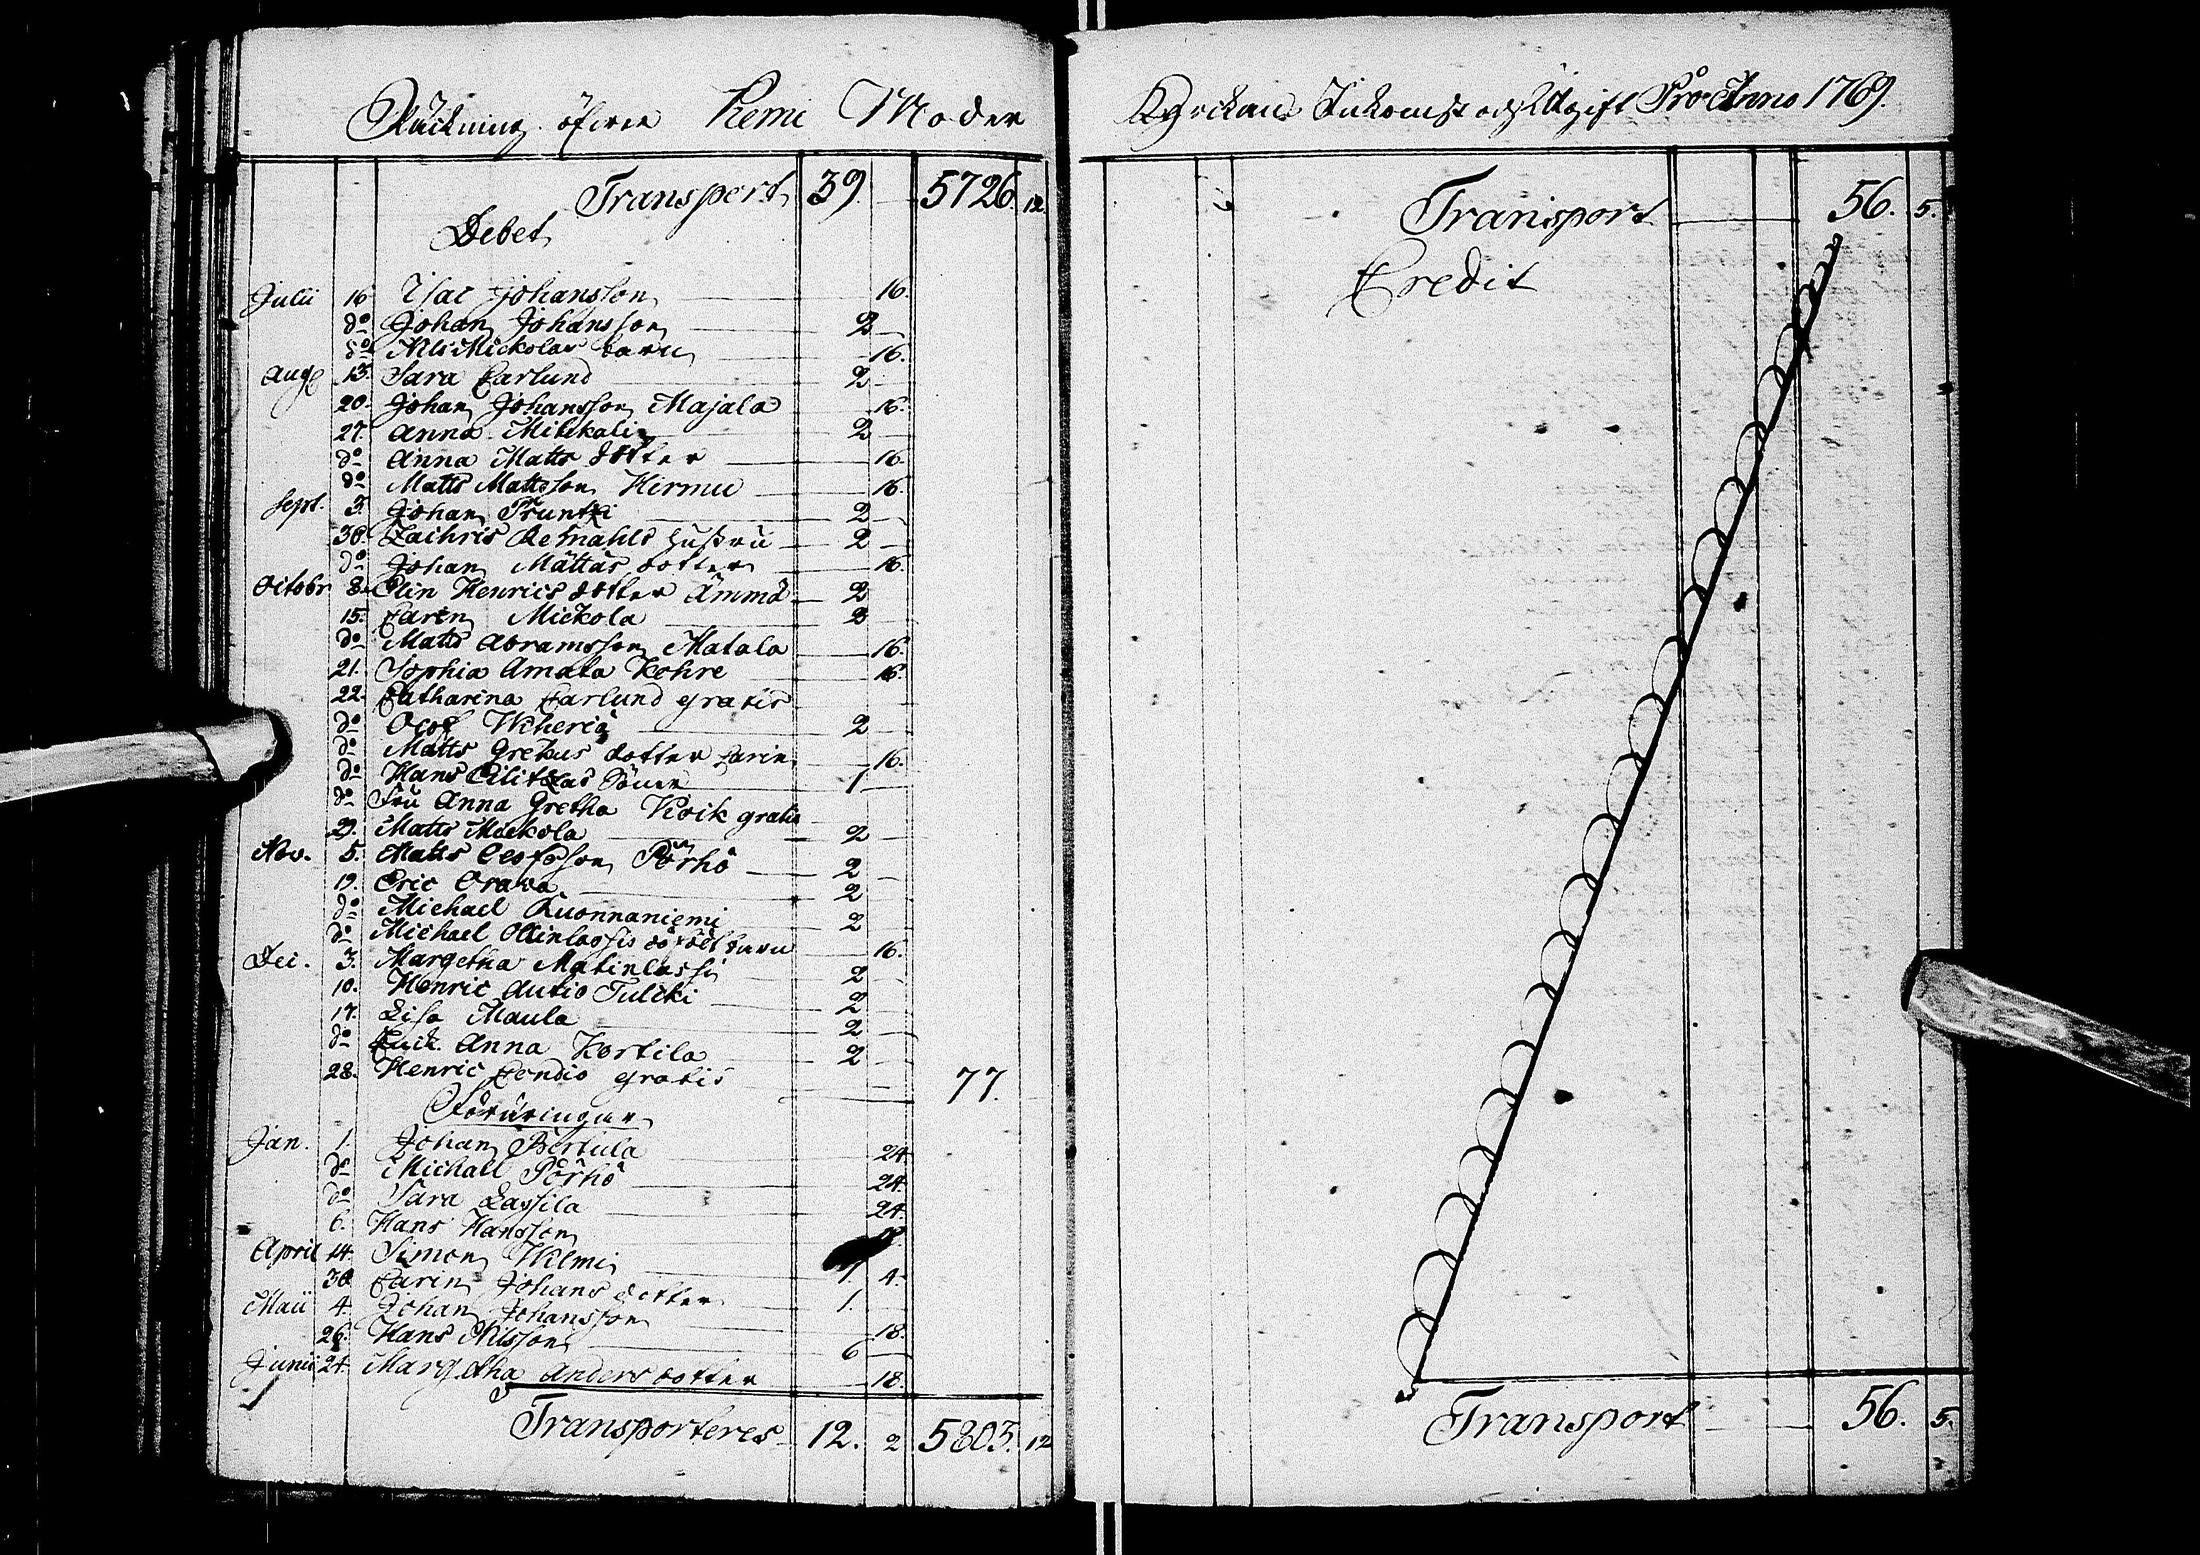 Räckning öfwer Kemi Moder
Transport 39. 5726. 12.
Debet
Julii 16 Isac Johansson 16.
do Johan Johansson 2
do Nils Mickolas barn 16.
Aug 13. Sara Carlund 2
20. Johan Johansson Majala 16.
27. Anna Mikkali 2
do Anna Matts dotter 16.
do Matts Mattsson Hirmu 16.
Sept. 3. Johan Pruntzi 2
30. Zachris hustru 2
do Johan Mättäs dotter 16.
Octobr 8. Elin Henrics dotter Ämmä 2
15. Carin Mickola 2
do Matts Abramsson Matala 16.
21. Sophia Amata Kohre 16.
22. Catharina Carlund gratis
do Olof 2
do Matts Grekus dotter Carin 16.
do Hans 1
do Fru Anna Gretha Koik gratis
29. Matts Mickola 2
Nov. 5. Matts Olofsson Pörhö 2
19. Eric Orawa 2
do Michael Kuonnaniemi 2
do Michael Ollinlassis barn 16.
Dec. 3. Margetha Matinlassi 2
10. Henric Autio Tulcki 2
17. Lisa Maula 2
do Anna Kortila 2
28. Henric gratis 77.
Föräringar
Jan. 1. Johan Bertula 24
do Michall Pörhö 24.
do Sara Lassila 24.
6. Hans Hansson
April 14. Simon Wilmi 1 4.
30. Carin Johans dotter 1.
Maii 4. Johan Johansson 18.
26. Hans Nilsson 6
Junii 24. Margetha Anders dotter 18.
Transporteres 12. 2 5803. 12
Kyrckans Inkomst och Utgift Pro Anno 1769.
Transport 56. 5.
Credit
Transport 56. 5.